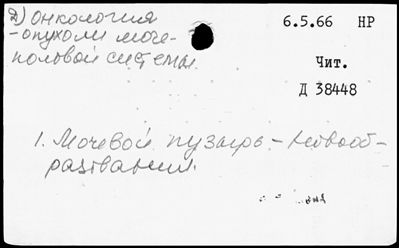 2) онкология
- опухоли моче-
половой системы.
6.5.66 НР
Чит.
Д 38448
1. Мочевой пузырь - новооб-
разования.